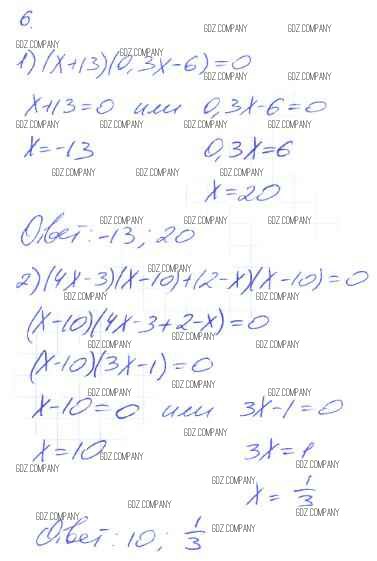 6.
GDZ.COMPANY GDZ.COMPANY
GDZ.COMPANY GDZ.COMPANY
1) (x+13)(0,3x-6)=0
GDZ.COMPANY GDZ.COMPANY
x+13=0 или 0,3x-6=0
GDZ.COMPANY GDZ.COMPANY GDZ.COMPANY GDZ.COMPANY
x=-13 0,3x=6
GDZ.COMPANY GDZ.COMPANY GDZ.COMPANY
x=20
GDZ.COMPANY GDZ.COMPANY GDZ.COMPANY
Ответ: -13; 20
GDZ.COMPANY
2) (4x-3)(x-10)+(2-x)(x-10)=0
GDZ.COMPANY GDZ.COMPANY
(x-10)(4x-3+2-x)=0
GDZ.COMPANY GDZ.COMPANY GDZ.COMPANY
(x-10)(3x-1)=0
GDZ.COMPANY GDZ.COMPANY GDZ.COMPANY
x-10=0 или 3x-1=0
GDZ.COMPANY
x=10 3x=1
GDZ.COMPANY GDZ.COMPANY GDZ.COMPANY
GDZ.COMPANY
x=1/3
GDZ.COMPANY GDZ.COMPANY GDZ.COMPANY
Ответ: 10; 1/3
GDZ.COMPANY